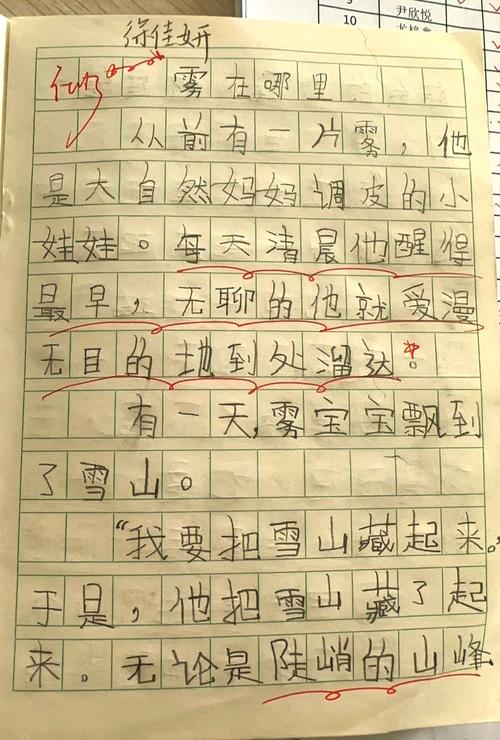 尹欣悦
10
徐佳妍
雾在哪里
从前有一片雾，他
是大自然妈妈调皮的小
娃娃。每天清晨他醒得
最早，无聊的他就爱漫
无目的地到处溜达。
有一天，雾宝宝飘到
了雪山。
“我要把雪山藏起来。”
于是，他把雪山藏了起
来。无论是陡峭的山峰